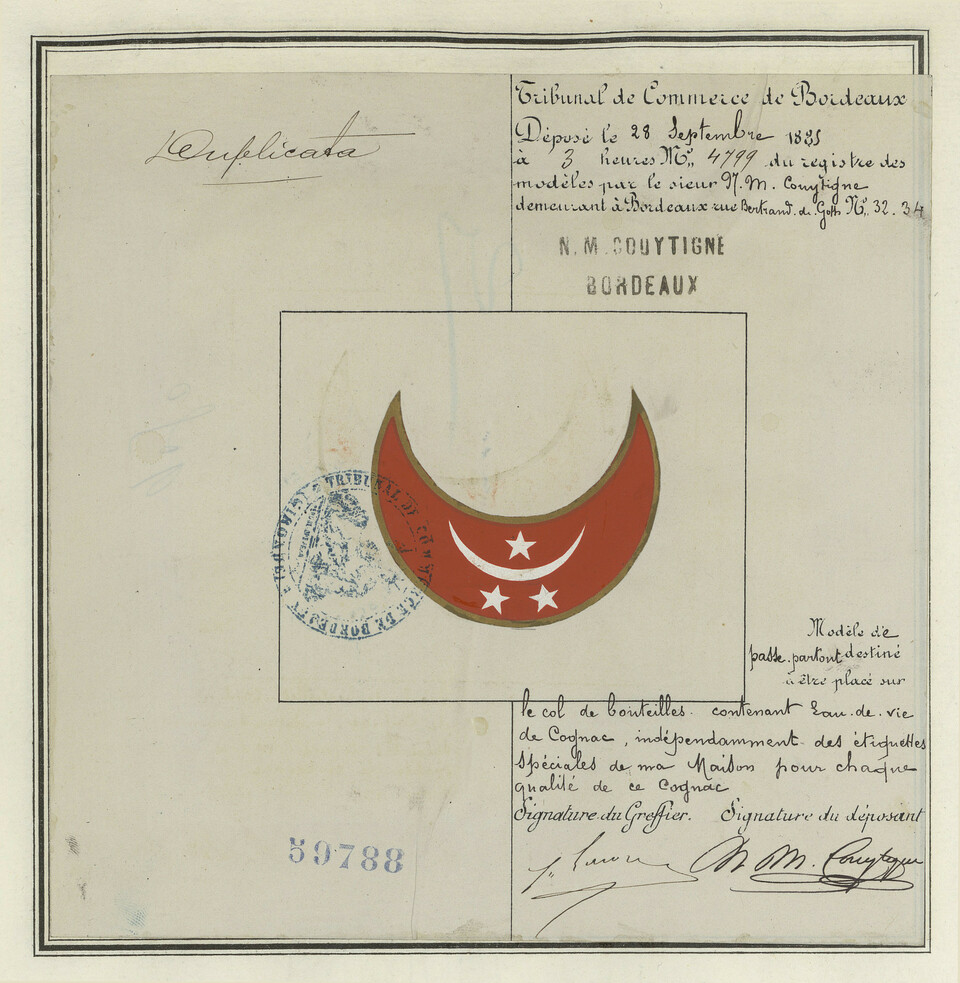 Duplicata
Tribunal de Commerce de Bordeaux
Déposé le 28 Septembre
à 3 heures Nº 4799 du registre des
modèles par le sieur N. M. Couytigne
demeurant à Bordeaux rue Bertrand. de. Goth Nº 32. 34
N. M. COUYTIGNE
BORDEAUX
TRIBUNAL DE COMMERCE DE BORDEAUX
Modèle de
passe-partout destiné
à être placé sur
le col de bouteilles contenant Eau-de-vie
de Cognac, indépendamment des étiquettes
spéciales de ma Maison pour chaque
qualité de ce Cognac
Signature du Greffier. Signature du déposant
N. M. Couytigne
59788